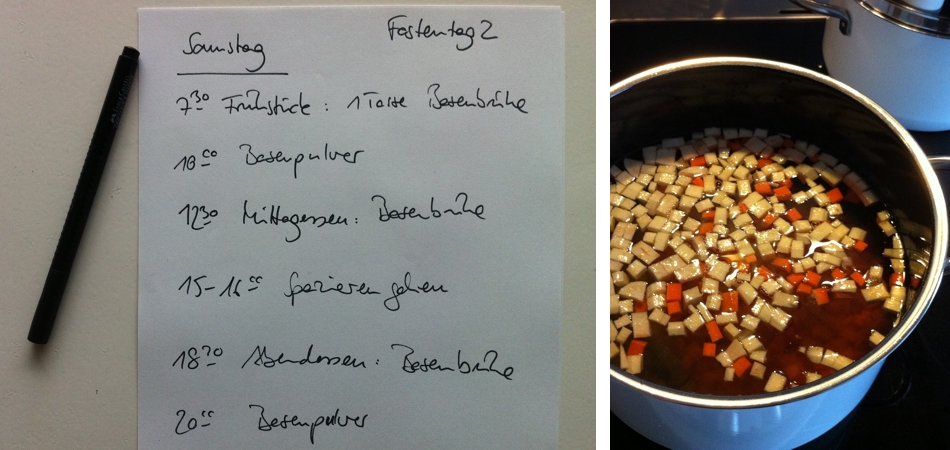 Fastentag 2
Samstag
7³⁰ Frühstück: 1 Tasse Basenbrühe
10⁰⁰ Basenpulver
12³⁰ Mittagessen: Basenbrühe
15-16⁰⁰ Spazieren gehen
18³⁰ Abendessen: Basenbrühe
20⁰⁰ Basenpulver